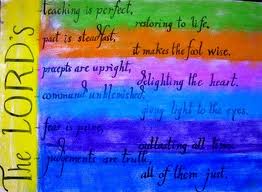 The LORD's
teaching is perfect,
restoring to life.
pact is steadfast,
it makes the fool wise.
precepts are upright,
delighting the heart.
command unblemished,
giving light to the eyes.
fear is pure,
outlasting all time.
judgements are truth,
all of them just.